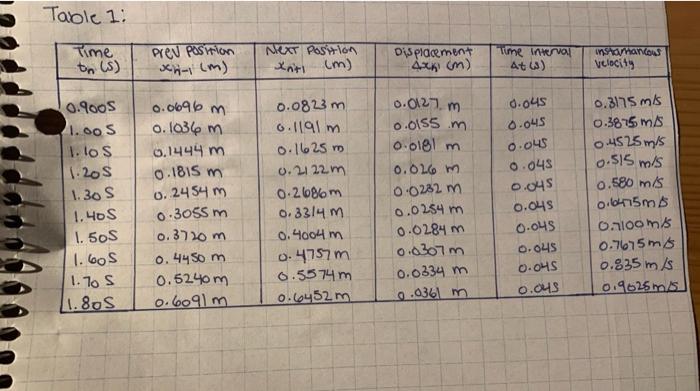 Table 1:
Time tn (s) Prev Position xn-1 (m) Next Position xn+1 (m) Displacement Δxn (m) Time Interval Δt (s) instantaneous velocity
0.900s 0.0696 m 0.0823 m 0.0127 m 0.04s 0.3175 m/s
1.00s 0.1036 m 0.1191 m 0.0155 m 0.04s 0.3875 m/s
1.10s 0.1444 m 0.1625 m 0.0181 m 0.04s 0.4525 m/s
1.20s 0.1815 m 0.2122 m 0.026 m 0.04s 0.515 m/s
1.30s 0.2454 m 0.2686 m 0.0232 m 0.04s 0.580 m/s
1.40s 0.3055 m 0.3314 m 0.0254 m 0.04s 0.6475 m/s
1.50s 0.3720 m 0.4004 m 0.0284 m 0.04s 0.7100 m/s
1.60s 0.4450 m 0.4757 m 0.0307 m 0.04s 0.7675 m/s
1.70s 0.5240 m 0.5574 m 0.0334 m 0.04s 0.835 m/s
1.80s 0.6091 m 0.6452 m 0.0361 m 0.04s 0.9025 m/s